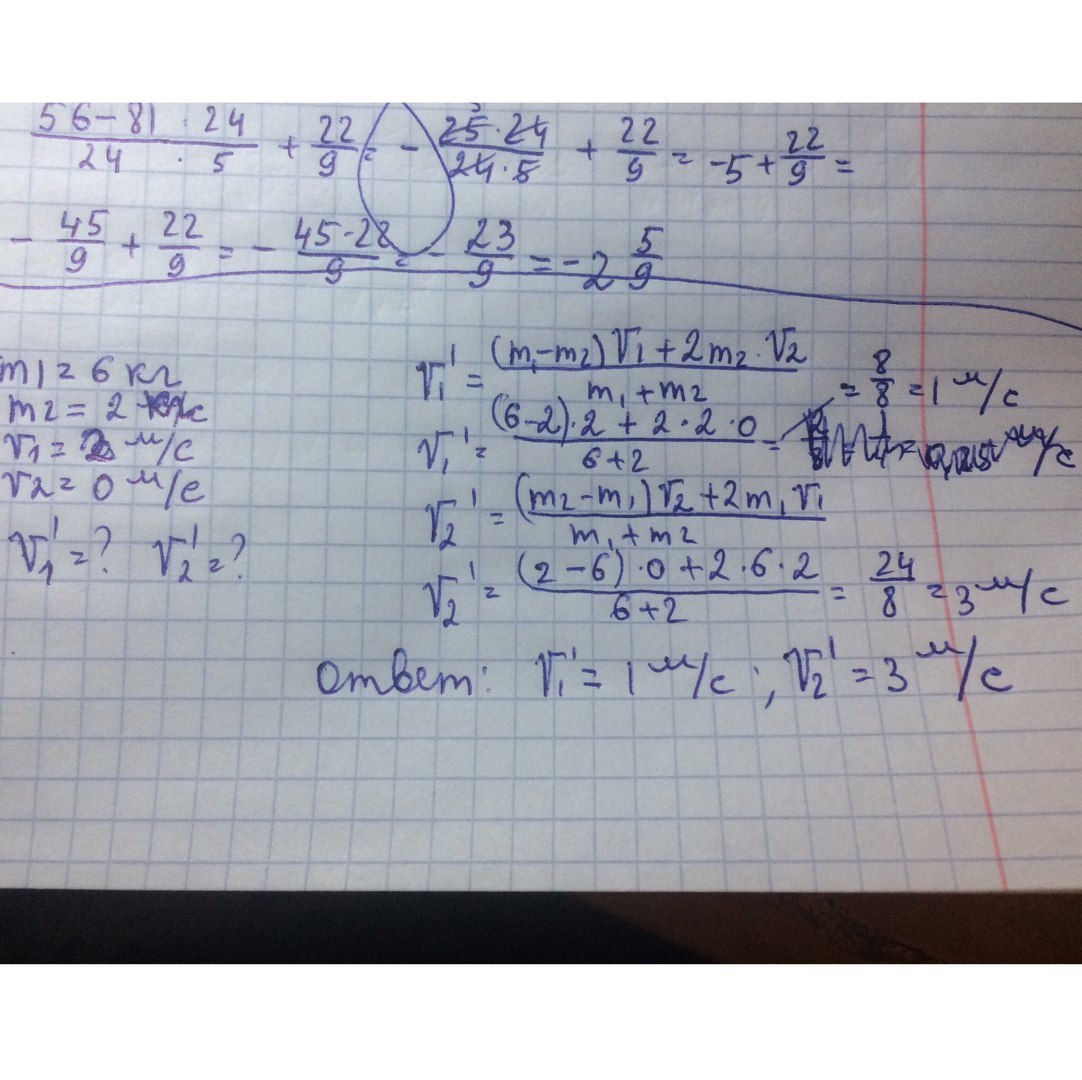 56-81 · 24 / 24 · 5 + 22/9 = - 25·24 / 24·5 + 22/9 = -5 + 22/9 =
- 45/9 + 22/9 = - 45-22 / 9 = - 23/9 = -2 5/9
m1 = 6 кг
m2 = 2
v1 = 2 м/с
v2 = 0 м/с
v1' = ? v2' = ?
v1' = (m1-m2) v1 + 2 m2 · v2 / m1 + m2
v1' = (6-2)·2 + 2·2·0 / 6+2 = = 8/8 = 1 м/с
v2' = (m2-m1) v2 + 2m1 v1 / m1 + m2
v2' = (2-6)·0 + 2·6·2 / 6+2 = 24/8 = 3 м/с
ответ: v1' = 1 м/с ; v2' = 3 м/с